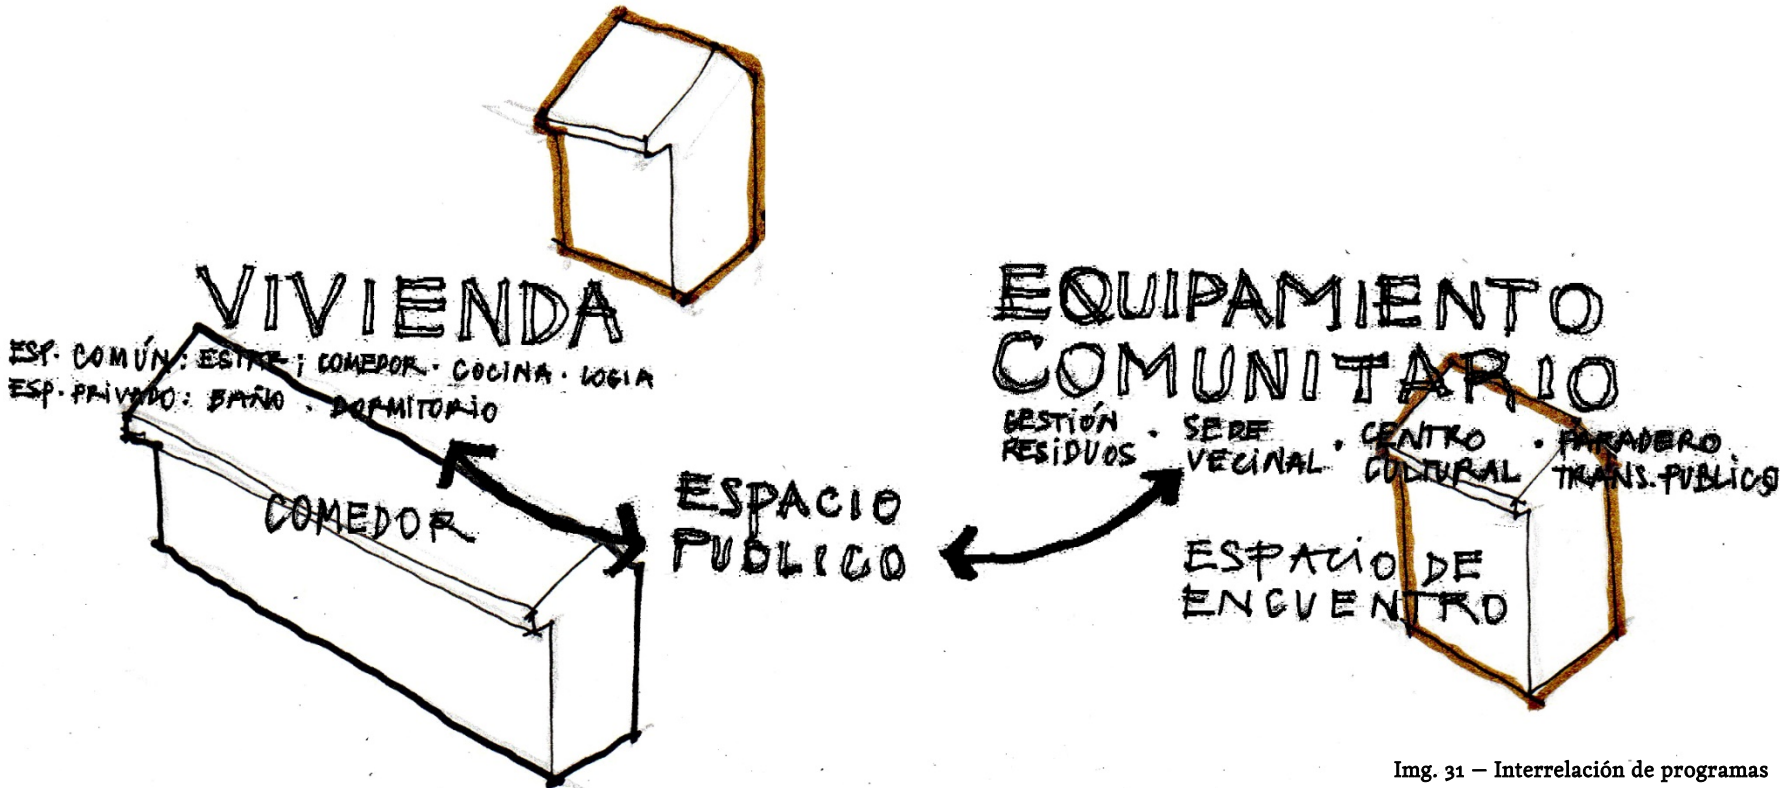 VIVIENDA
ESP. COMÚN: ESTAR; COMEDOR · COCINA · LOGIA
ESP. PRIVADO: BAÑO · DORMITORIO
COMEDOR
ESPACIO
PUBLICO
EQUIPAMIENTO
COMUNITARIO
GESTIÓN
RESIDUOS ·
SEDE
VECINAL ·
CENTRO
CULTURAL ·
PARADERO
TRANS. PUBLICO
ESPACIO DE
ENCUENTRO
Img. 31 – Interrelación de programas